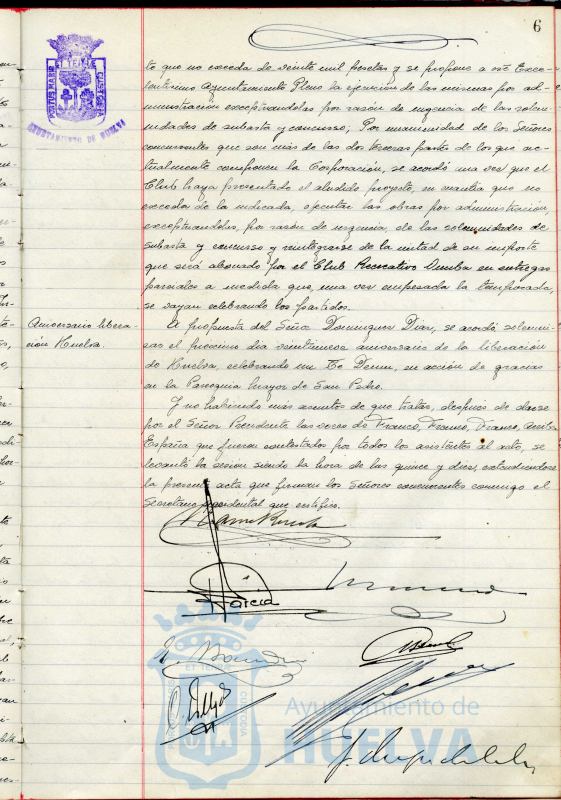 6
PORTUS MARIS ET TERRE CUSTODIA
AYUNTAMIENTO DE HUELVA
to que no exceda de veinte mil pesetas y se propone a ese Exce-
lentísimo Ayuntamiento Pleno la ejecución de las mismas por ad-
ministración exceptuandolas por razón de urgencia de las solem-
nidades de subasta y concurso, Por unanimidad de los Señores
concurrentes que son más de las dos terceras partes de los que ac-
tualmente componen la Corporación, se acordó una vez que el
Club haya presentado el aludido proyecto, en cuantia que no
exceda de la indicada, ejecutar las obras por administración,
exceptuandolas, por razón de urgencia, de las solemnidades de
subasta y concurso y reintegrarse de la mitad de su importe
que será abonado por el Club Recreativo Onuba en entregas
parciales a medida que, una vez empezada la temporada,
se vayan celebrando los partidos.
Aniversario libera-
ción Huelva.
A propuesta del Señor Dominguez Diaz, se acordó solemni-
zar el proximo dia veintinueve aniversario de la liberación
de Huelva, celebrando un Te Deum, en acción de gracias
en la Parroquia Mayor de San Pedro.
Y no habiendo más asuntos de que tratar, despues de darse
por el Señor Presidente las voces de Franco, Franco, Franco, Arriba
España que fueron contestados por todos los asistentes al acto, se
levantó la sesion siendo la hora de las quince y diez, extendiendose
la presente acta que firman los Señores concurrentes conmigo el
Secretario accidental que certifico.
García
Ayuntamiento de
HUELVA